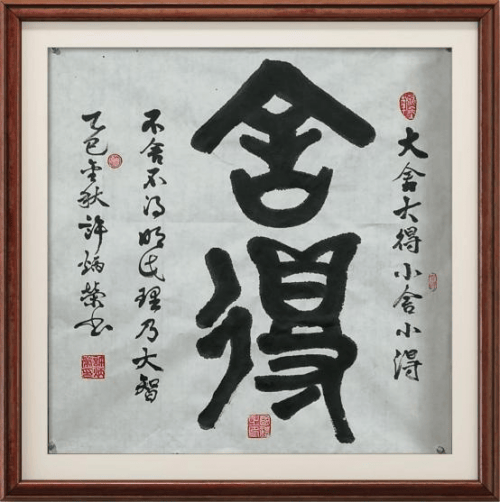 舍得
大舍大得小舍小得
不舍不得明此理乃大智
乙巳金秋许炳荣书